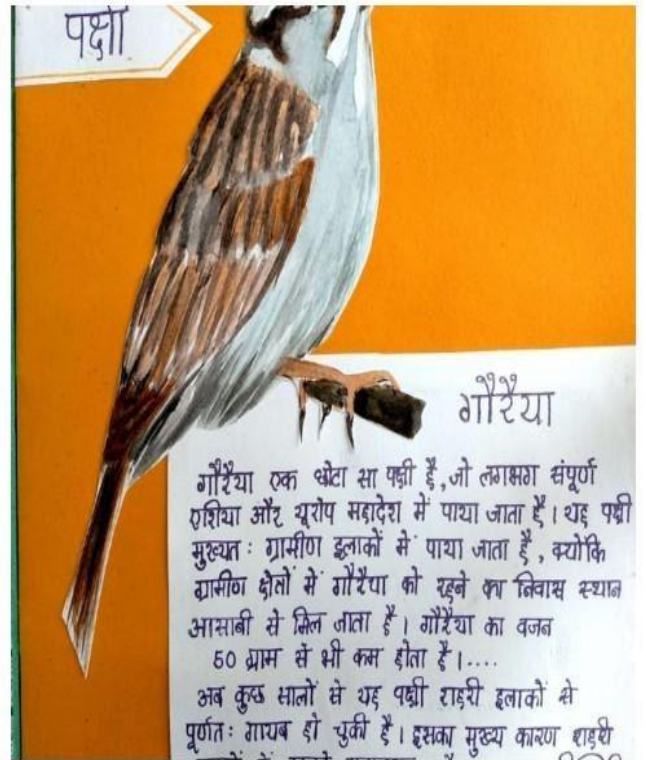 पक्षी
गौरैया
गौरैया एक छोटा सा पक्षी है, जो लगभग संपूर्ण
एशिया और यूरोप महादेश में पाया जाता है। यह पक्षी
मुख्यतः ग्रामीण इलाकों में पाया जाता है, क्योकि
ग्रामीण क्षेत्रों में गौरैया को रहने का निवास स्थान
आसानी से मिल जाता है। गौरैया का वजन
50 ग्राम से भी कम होता है।....
अब कुछ सालों से यह पक्षी शहरी इलाकों से
पूर्णतः गायब हो चुकी है। इसका मुख्य कारण शहरी